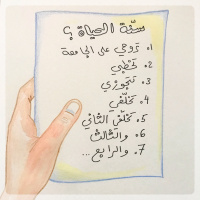 سنّة الحياة ؟
1. تروحي على الجامعة
2. تخطبي
3. تتجوزي
4. تخلّفي
5. تخلّفي الثاني
6. والثالث
7. والرابع...